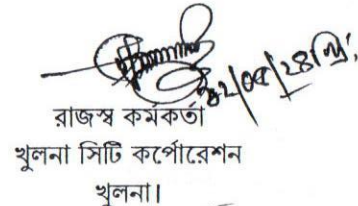 ০২/০৫/২৪খ্রি:
রাজস্ব কর্মকর্তা
খুলনা সিটি কর্পোরেশন
খুলনা।